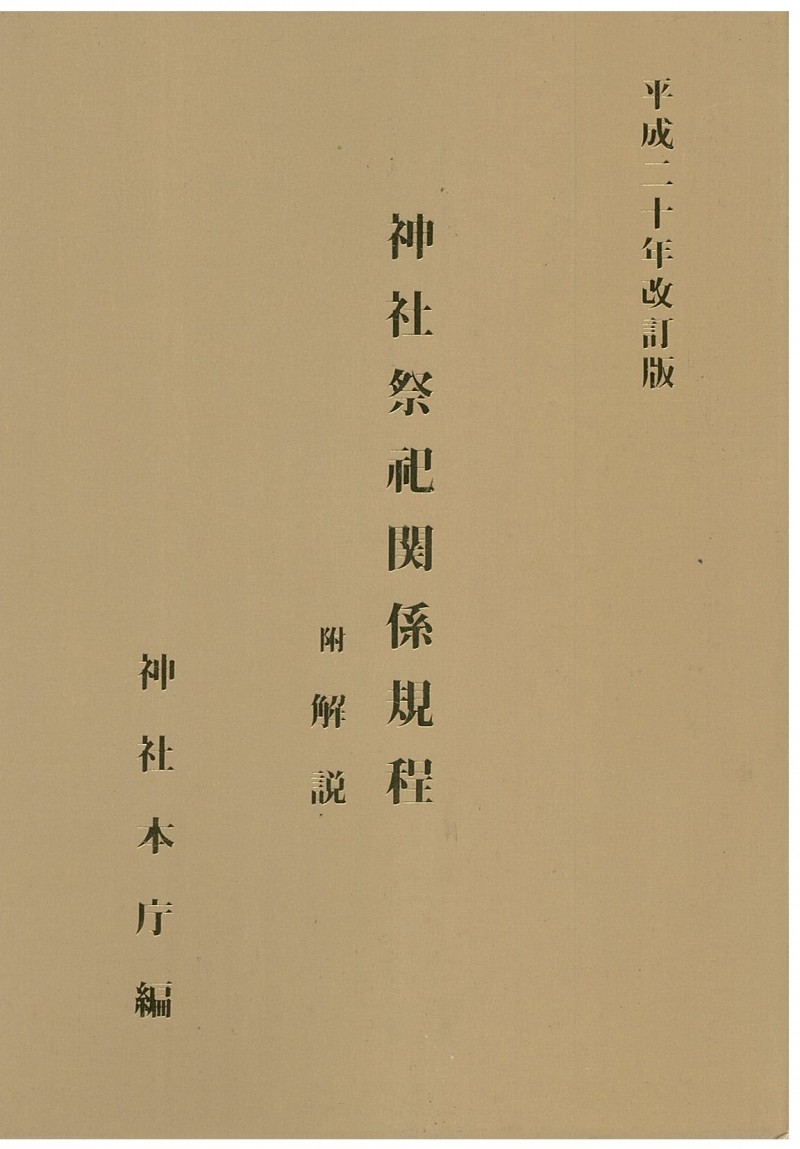 平成二十年改訂版
神社祭祀関係規程
附解説
神社本庁編